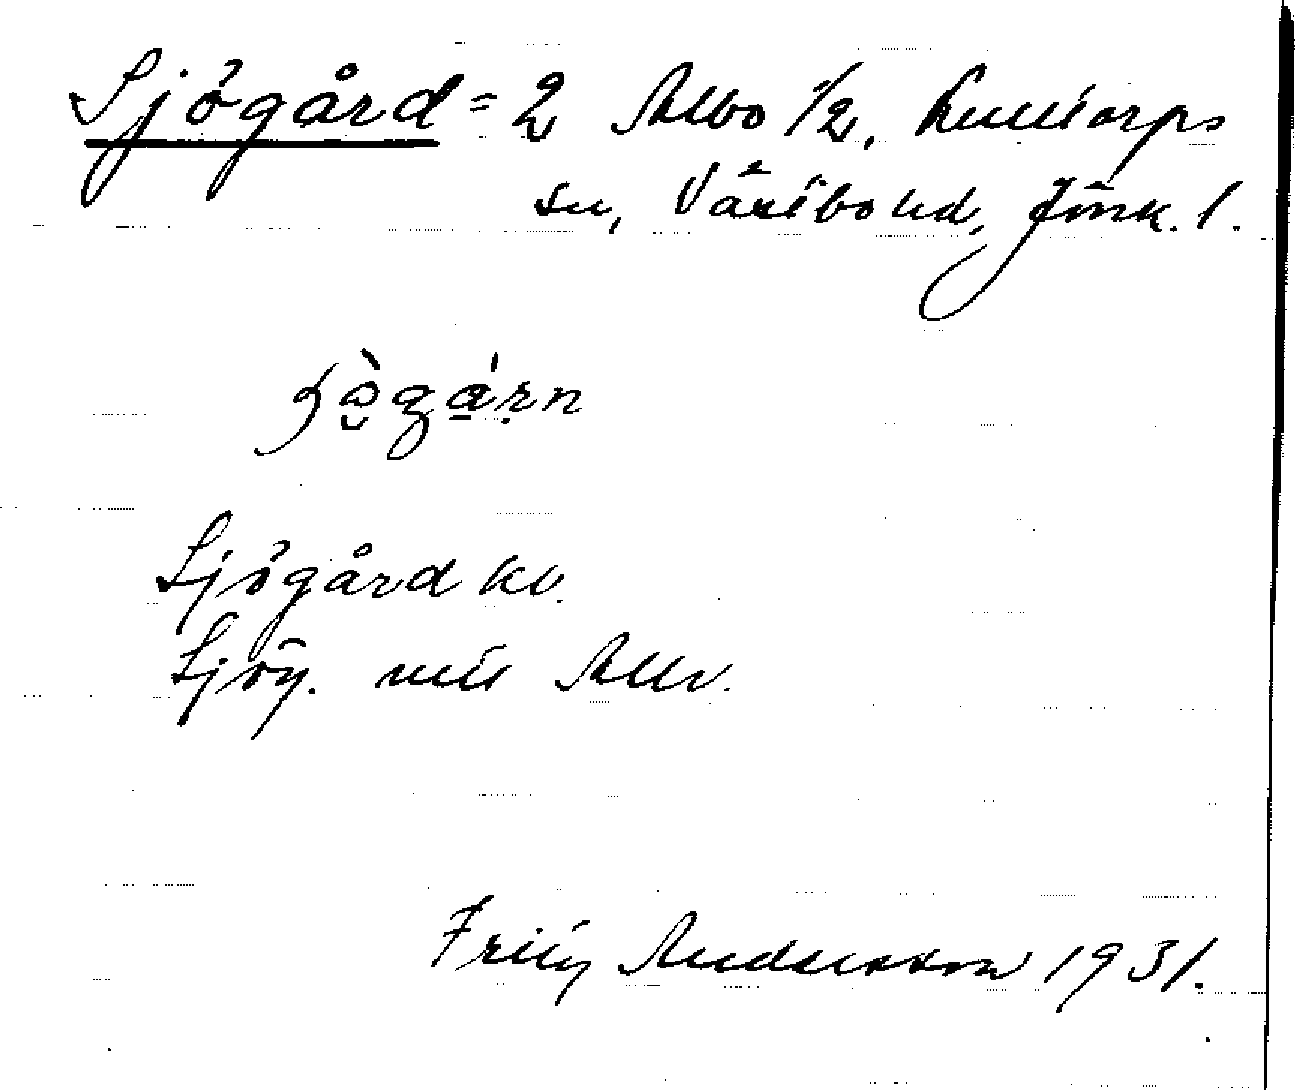 Sjögård = 2 Albo 1/2, Kulltorps
sn, Västbo hd, Jönk. l.
Sjögård kv.
Sjög.
Fritz Andersson 1931.